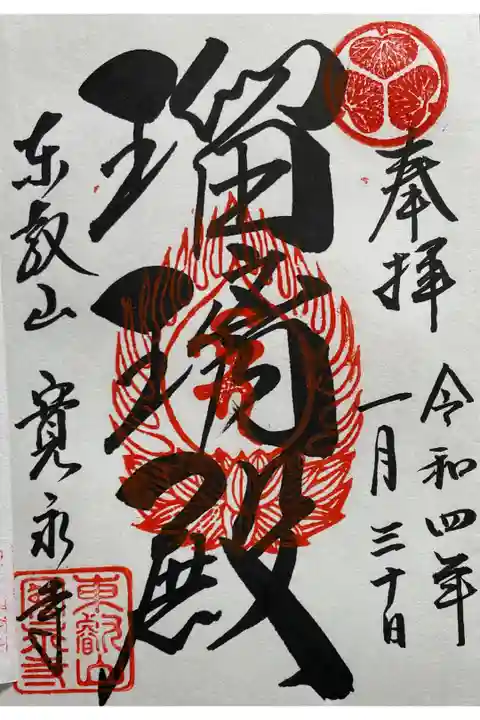 奉拝
令和四年
一月三十日
瑠璃殿
東叡山 寛永寺
東叡山
寛永寺